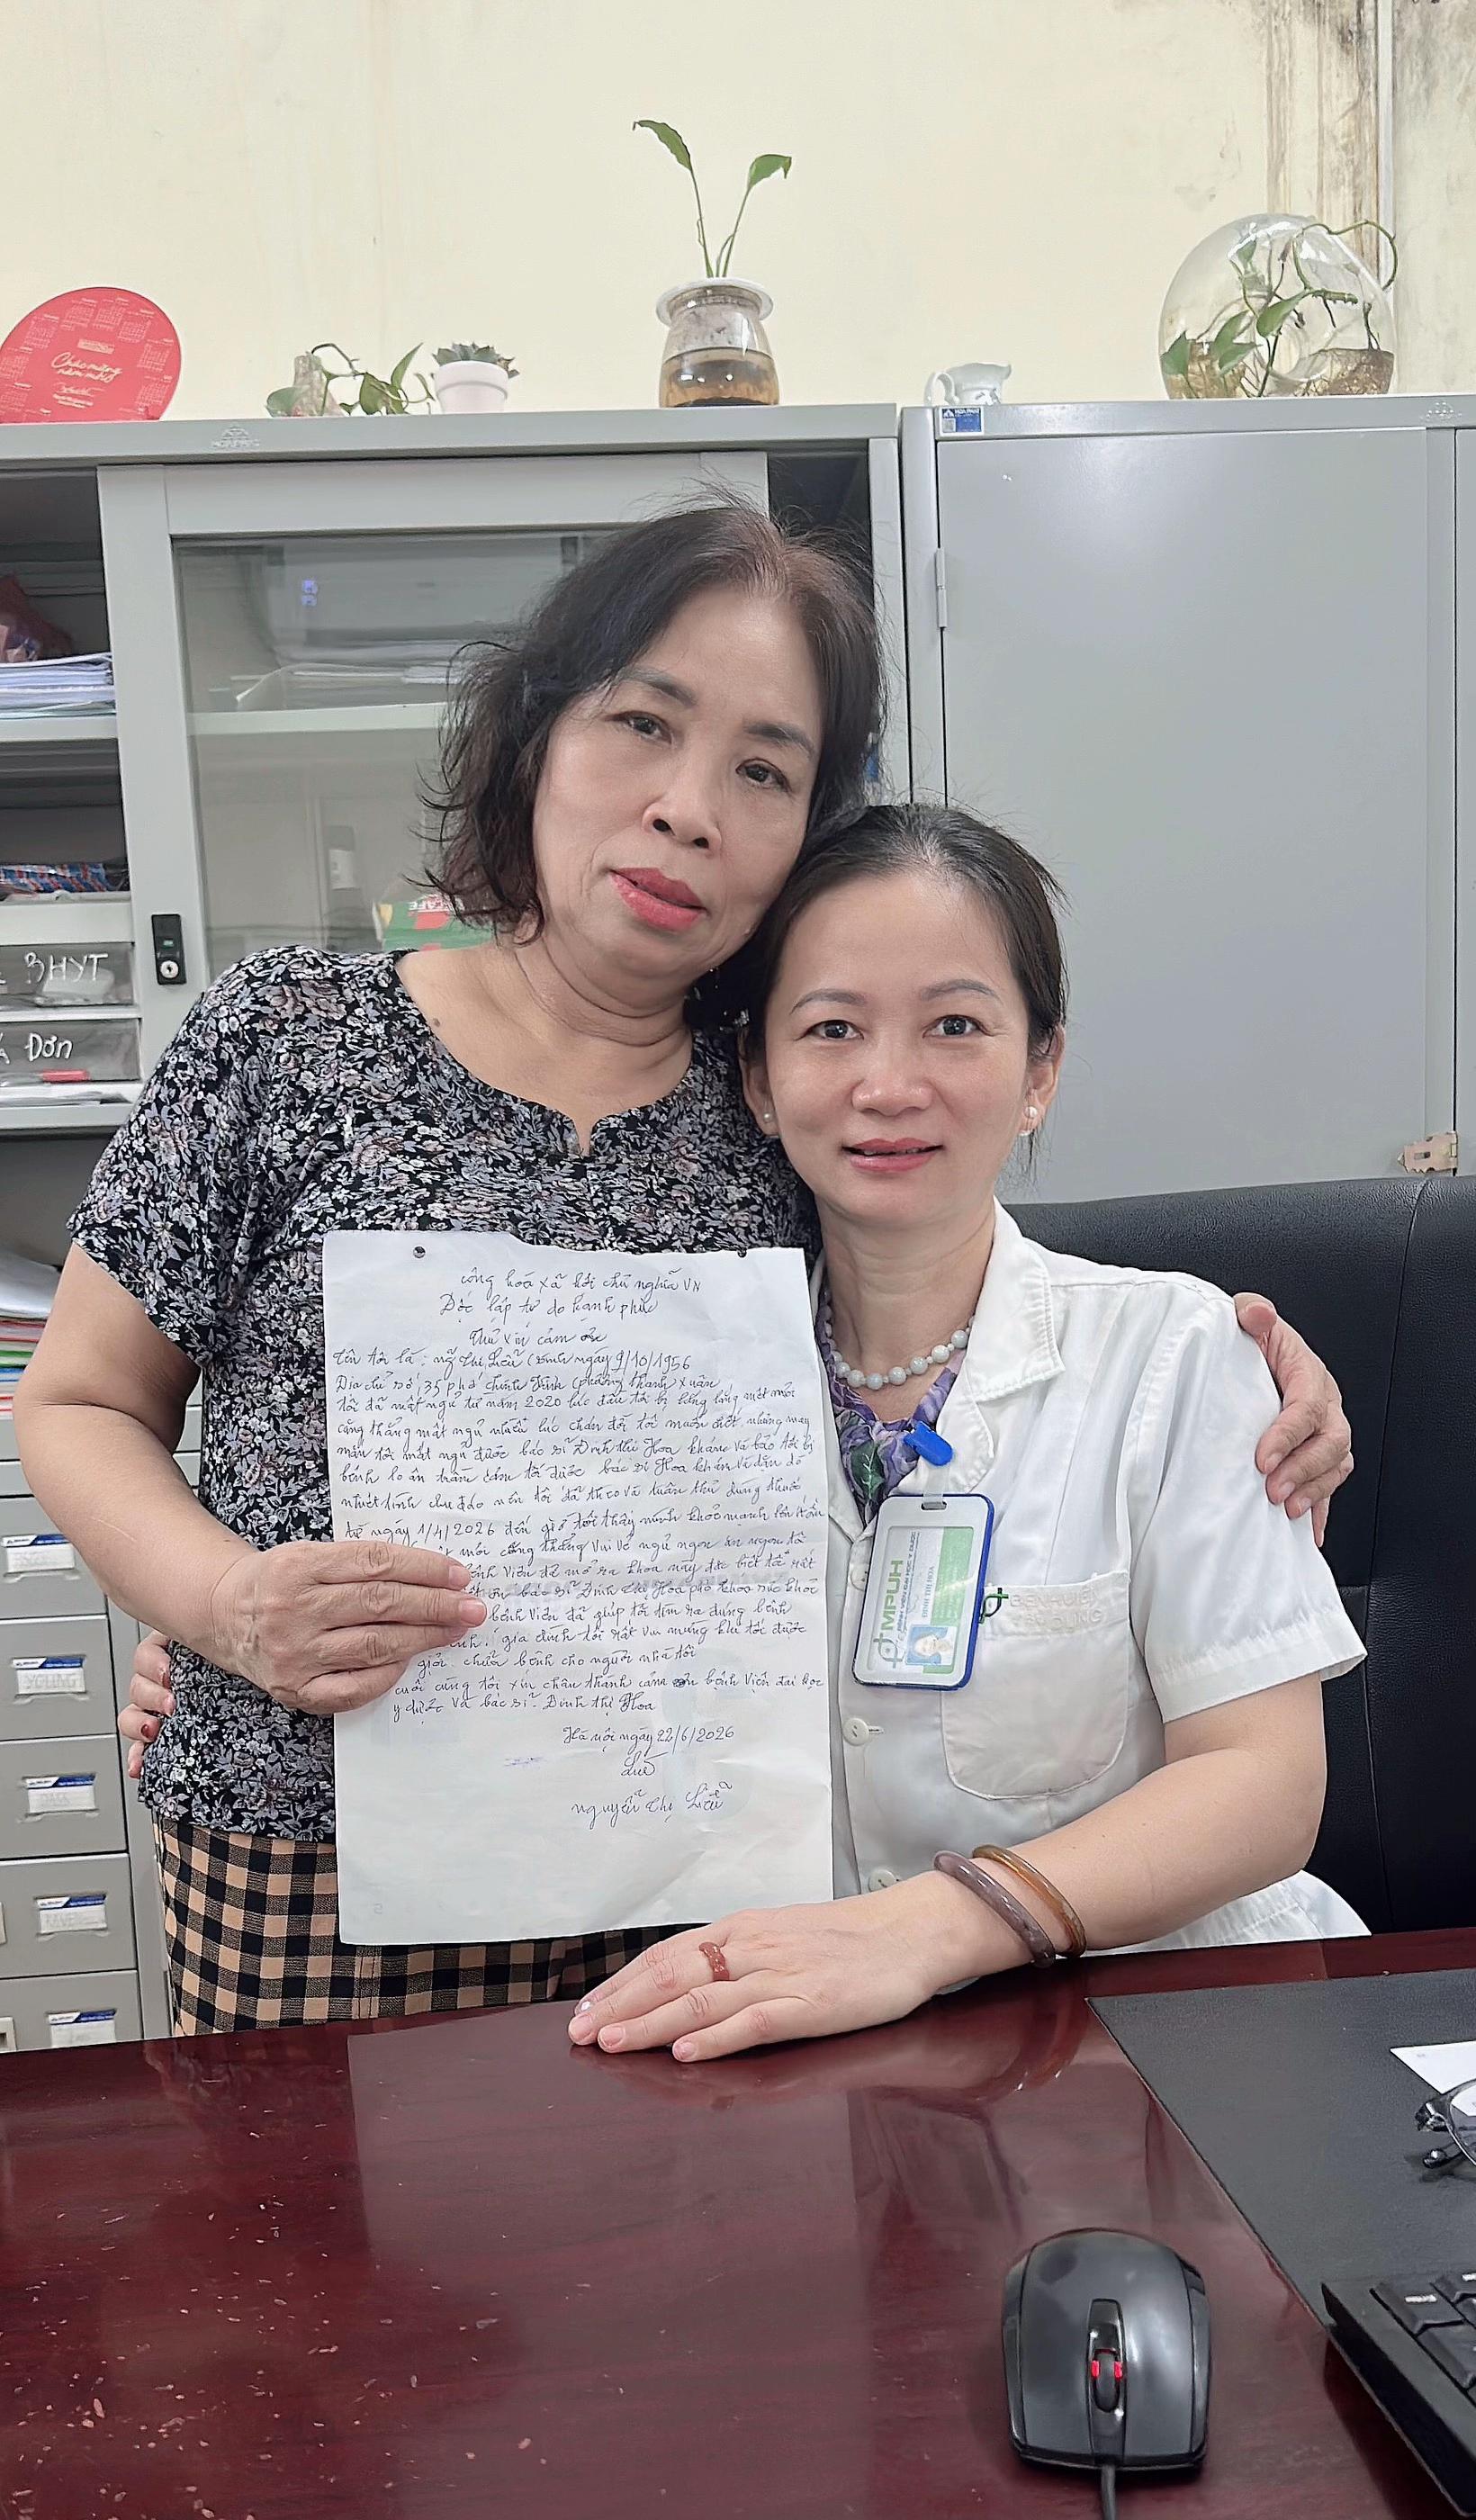 Chúc mừng năm mới
HOA PHAT
CAFE
BHYT
Đơn
cộng hoà xã hôi chủ nghĩa VN
Độc lập tự do hạnh phúc
Thư xin cảm ơn
Tên tôi là: nguyễn thị Liễu (sinh ngày 9/10/1956
Địa chỉ số 35 phố chính Kinh (phường thanh xuân
tôi đã mất ngủ từ năm 2020 lúc đầu tôi bị lâng lâng mệt mỏi
căng thẳng mất ngủ nhiều lúc chán đời tôi muốn chết nhưng may
mắn tôi mất ngủ được bác sĩ Đinh thị Hoa khám và bảo tôi bị
bệnh lo âu trầm cảm tôi được bác sĩ Hoa khám và dặn dò
nhiệt tình chu đáo nên tôi đã theo và tuân thủ dùng thuốc
từ ngày 1/4/2026 đến giờ tôi thấy mình khoẻ mạnh lên
mệt mỏi căng thẳng vui vẻ ngủ ngon ăn ngon tôi
bệnh viện đã mở ra khoa này đặc biệt tôi rất
ơn bác sĩ Đinh thị Hoa phó khoa sức khoẻ
bệnh viện đã giúp tôi tìm ra đúng bệnh
gia đình tôi rất vui mừng khi tôi được
giỏi chữa bệnh cho người nhà tôi
cuối cùng tôi xin chân thành cảm ơn bệnh viện đại học
y dược và bác sĩ Đinh thị Hoa
Hà nội ngày 22/6/2026
Liễu
nguyễn thị Liễu
MPUH
BỆNH VIỆN ĐẠI HỌC Y DƯỢC
ĐINH THỊ HOA
BỆNH VIỆN